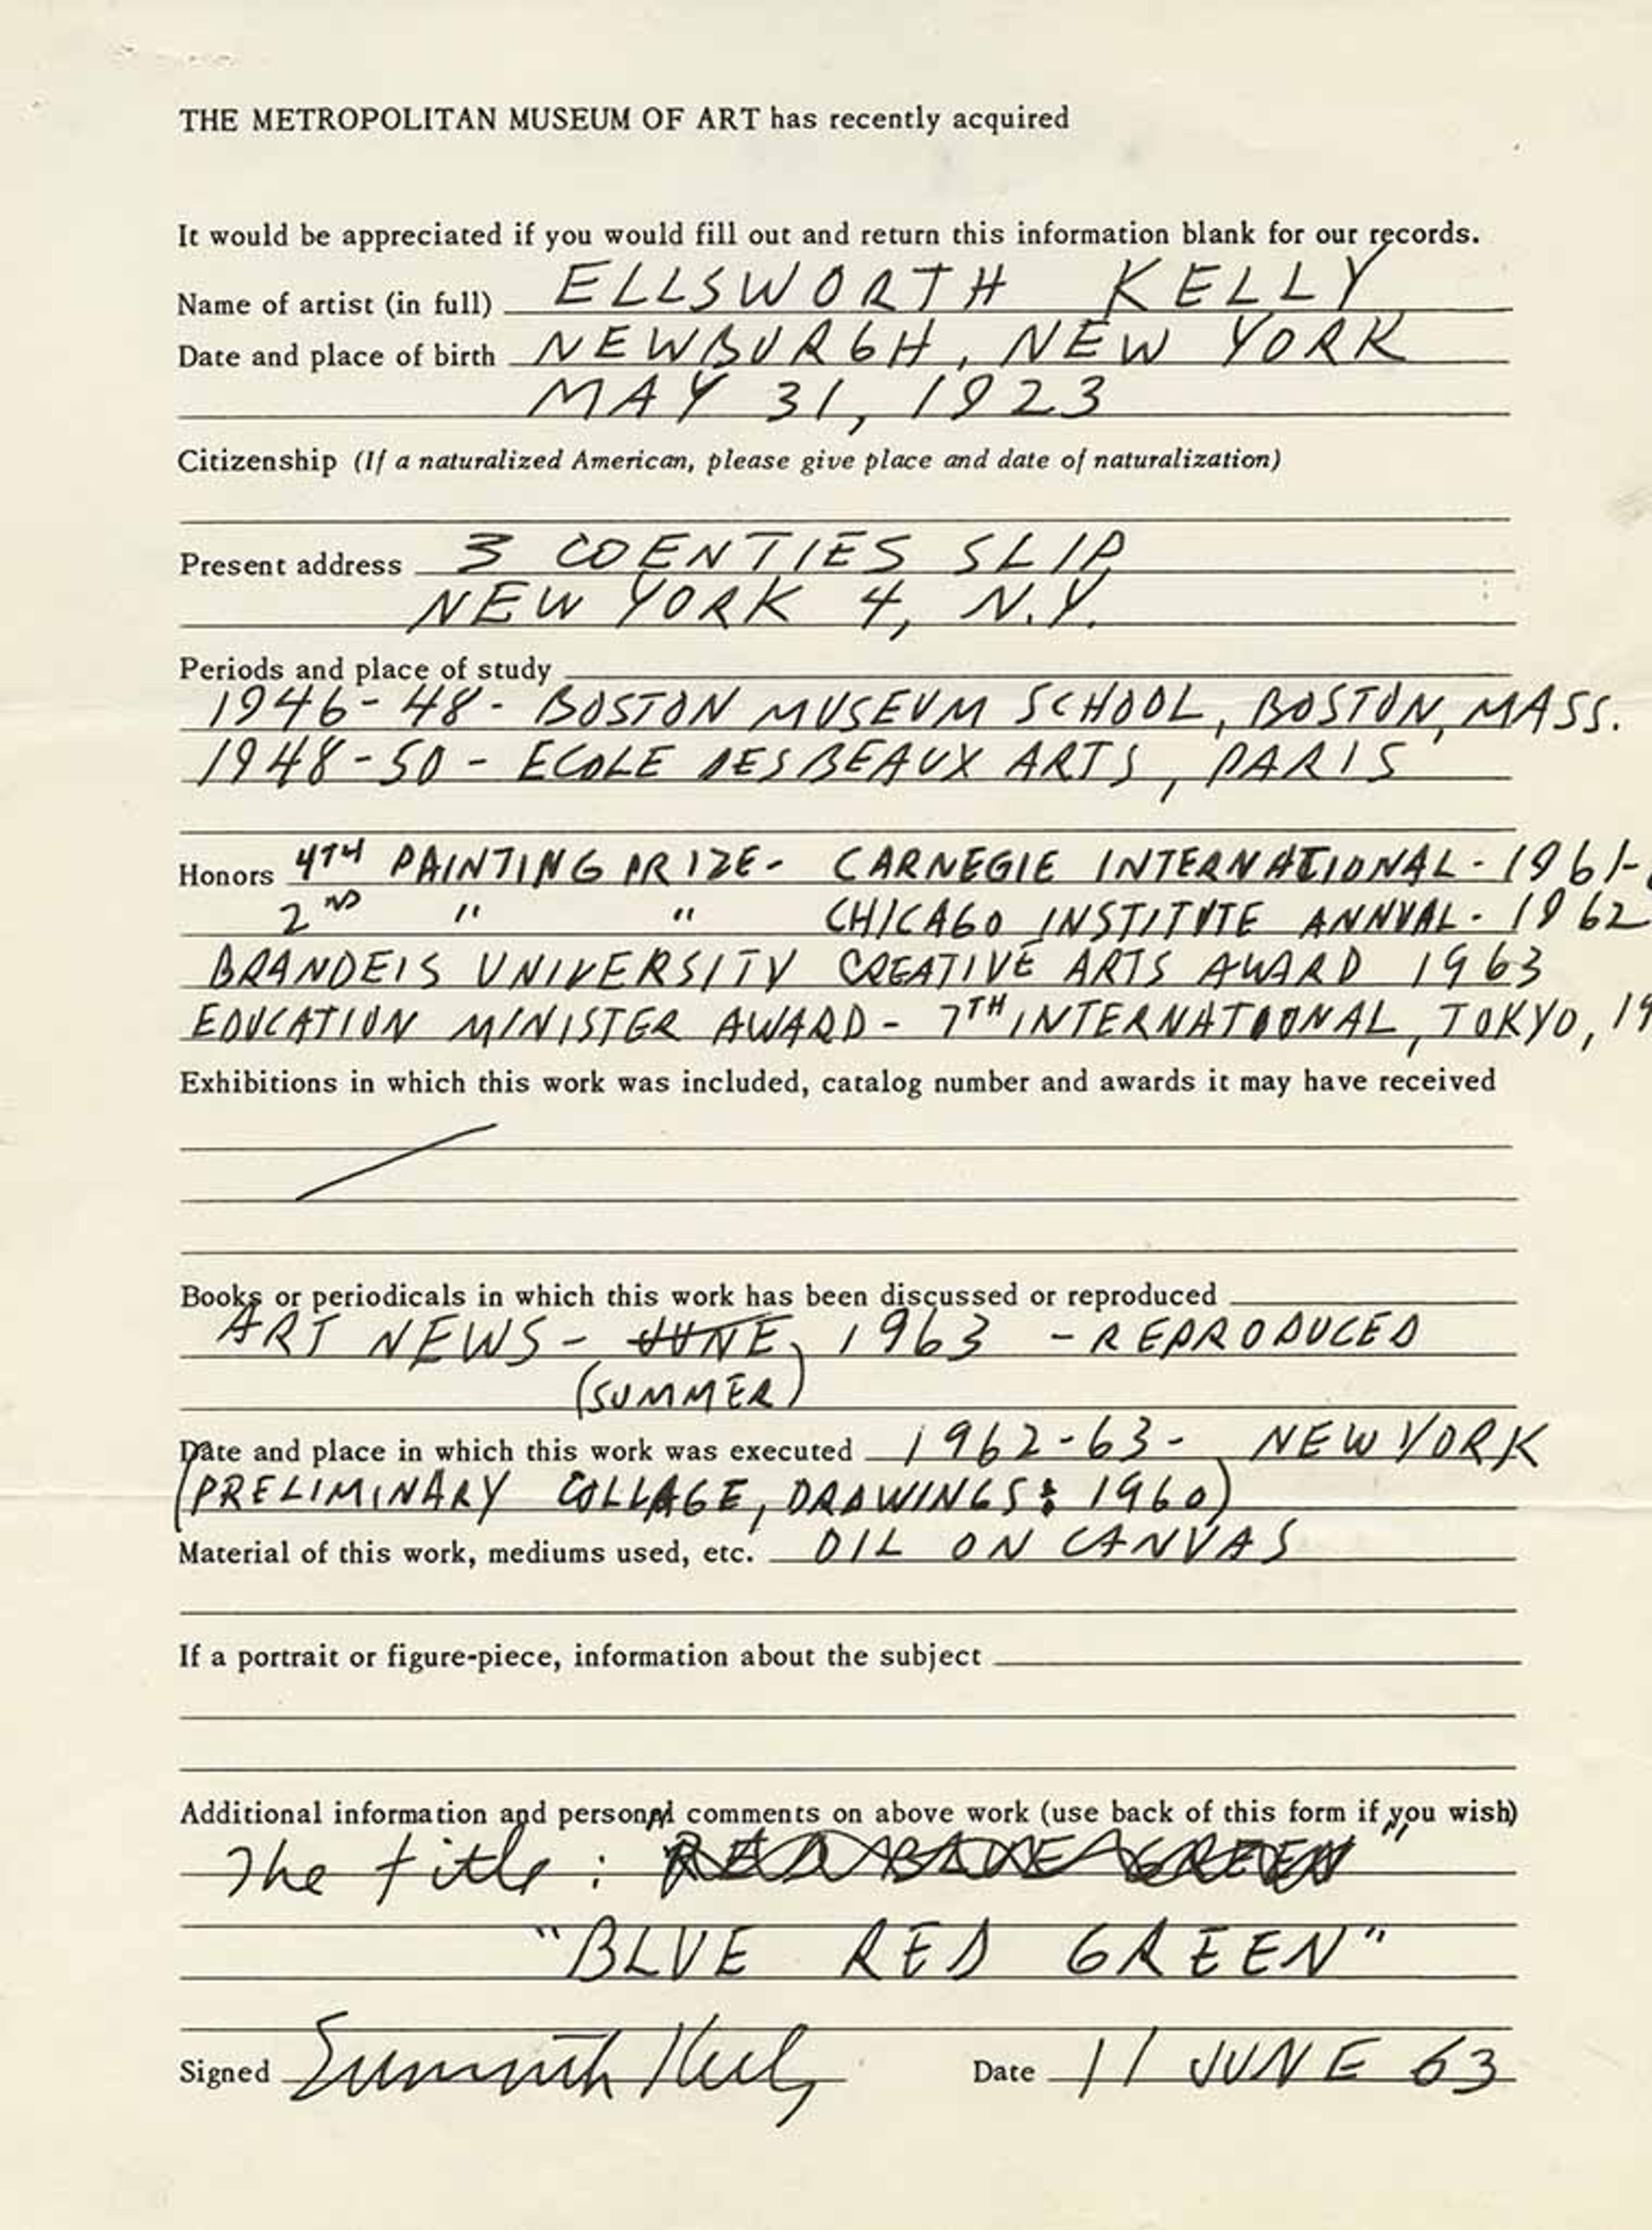 THE METROPOLITAN MUSEUM OF ART has recently acquired
It would be appreciated if you would fill out and return this information blank for our records.
Name of artist (in full) ELLSWORTH KELLY
Date and place of birth NEWBURGH, NEW YORK
MAY 31, 1923
Citizenship (If a naturalized American, please give place and date of naturalization)
Present address 3 COENTIES SLIP
NEW YORK 4, N.Y.
Periods and place of study
1946-48- BOSTON MUSEUM SCHOOL, BOSTON, MASS.
1948-50 - ECOLE DES BEAUX ARTS, PARIS
Honors 4TH PAINTING PRIZE- CARNEGIE INTERNATIONAL - 1961-
2ND " " CHICAGO INSTITUTE ANNUAL - 1962
BRANDEIS UNIVERSITY CREATIVE ARTS AWARD 1963
EDUCATION MINISTER AWARD - 7TH INTERNATIONAL, TOKYO, 19
Exhibitions in which this work was included, catalog number and awards it may have received
Books or periodicals in which this work has been discussed or reproduced
ART NEWS - JUNE, 1963 - REPRODUCED
(SUMMER)
Date and place in which this work was executed 1962-63- NEW YORK
(PRELIMINARY COLLAGE, DRAWINGS: 1960)
Material of this work, mediums used, etc. OIL ON CANVAS
If a portrait or figure-piece, information about the subject
Additional information and personal comments on above work (use back of this form if you wish)
The title : "RED BLUE GREEN"
"BLUE RED GREEN"
Signed Ellsworth Kelly Date 11 JUNE 63